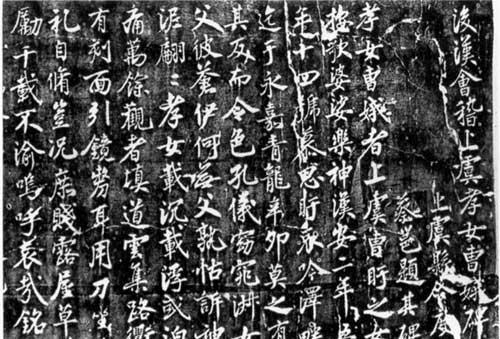 後漢會稽上虞孝女曹娥碑
上虞縣令度
蔡邕題其碑
孝女曹娥者上虞曹盱之女
撫歌婆娑樂神漢安二年
年十四號慕思盱哀吟澤畔
迄于永嘉青龍辛卯莫之有
其反而令色孔儀窈窕淑女
父彼蒼伊何無父孰怙訴神
泥翩二孝女載沉載浮或迫
痛萬餘觀者填道雲集路衢
有剋面引鏡剺耳用刀坐
礼自脩豈況庶賤露屋草
勵千載不渝嗚呼哀哉銘